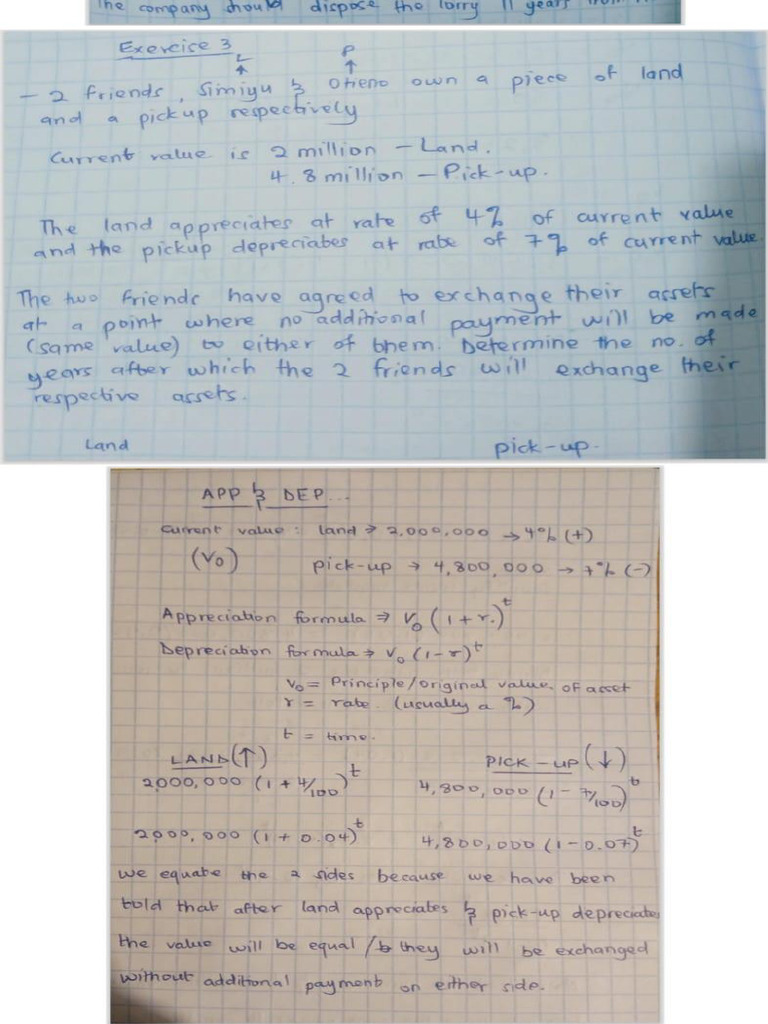 The company should dispose the lorry 11 years from
Exercise 3
L P
- 2 friends, Simiyu & Otieno own a piece of land
and a pickup respectively
Current value is 2 million - Land.
4.8 million - Pick-up.
The land appreciates at rate of 4% of current value
and the pickup depreciates at rate of 7% of current value
The two friends have agreed to exchange their assets
at a point where no additional payment will be made
(same value) to either of them. Determine the no. of
years after which the 2 friends will exchange their
respective assets.
Land pick-up.
APP & DEP...
Current value: land → 2,000,000 → 4% (+)
(V₀) pick-up → 4,800,000 → 7% (-)
Appreciation formula ⇒ V₀ (1 + r.)ᵗ
Depreciation formula ⇒ V₀ (1 - r)ᵗ
V₀ = Principle/original value of asset
r = rate. (usually a %)
t = time.
LAND (↑) PICK-UP (↓)
2,000,000 (1 + 4/100)ᵗ 4,800,000 (1 - 7/100)ᵗ
2,000,000 (1 + 0.04)ᵗ 4,800,000 (1 - 0.07)ᵗ
we equate the 2 sides because we have been
told that after land appreciates & pick-up depreciates
the value will be equal / they will be exchanged
without additional payment on either side.